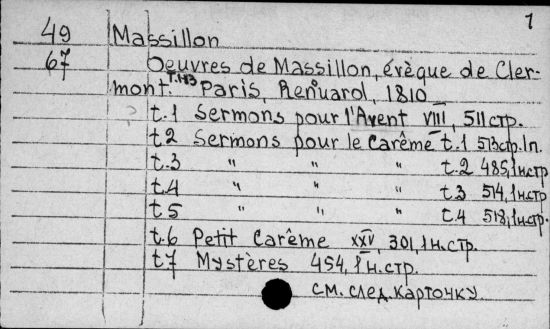 1
49 Massillon
67 Oeuvres de Massillon, évèque de Cler-
mont. т.1-13 Paris, Renouard, 1810
t.1 Sermons pour l'Avent VIII, 511 стр.
t.2 Sermons pour le Carême t.1 513 стр. 1 л.
t.3 " " " t.2 485, 1 н стр
t.4 " " " t.3 514, 1 н стр
t.5 " " " t.4 518, 1 н стр.
t.6 Petit Carême XXV, 301, 1 н. стр.
t.7 Mystères 454, 1 н. стр.
см. след. карточку.